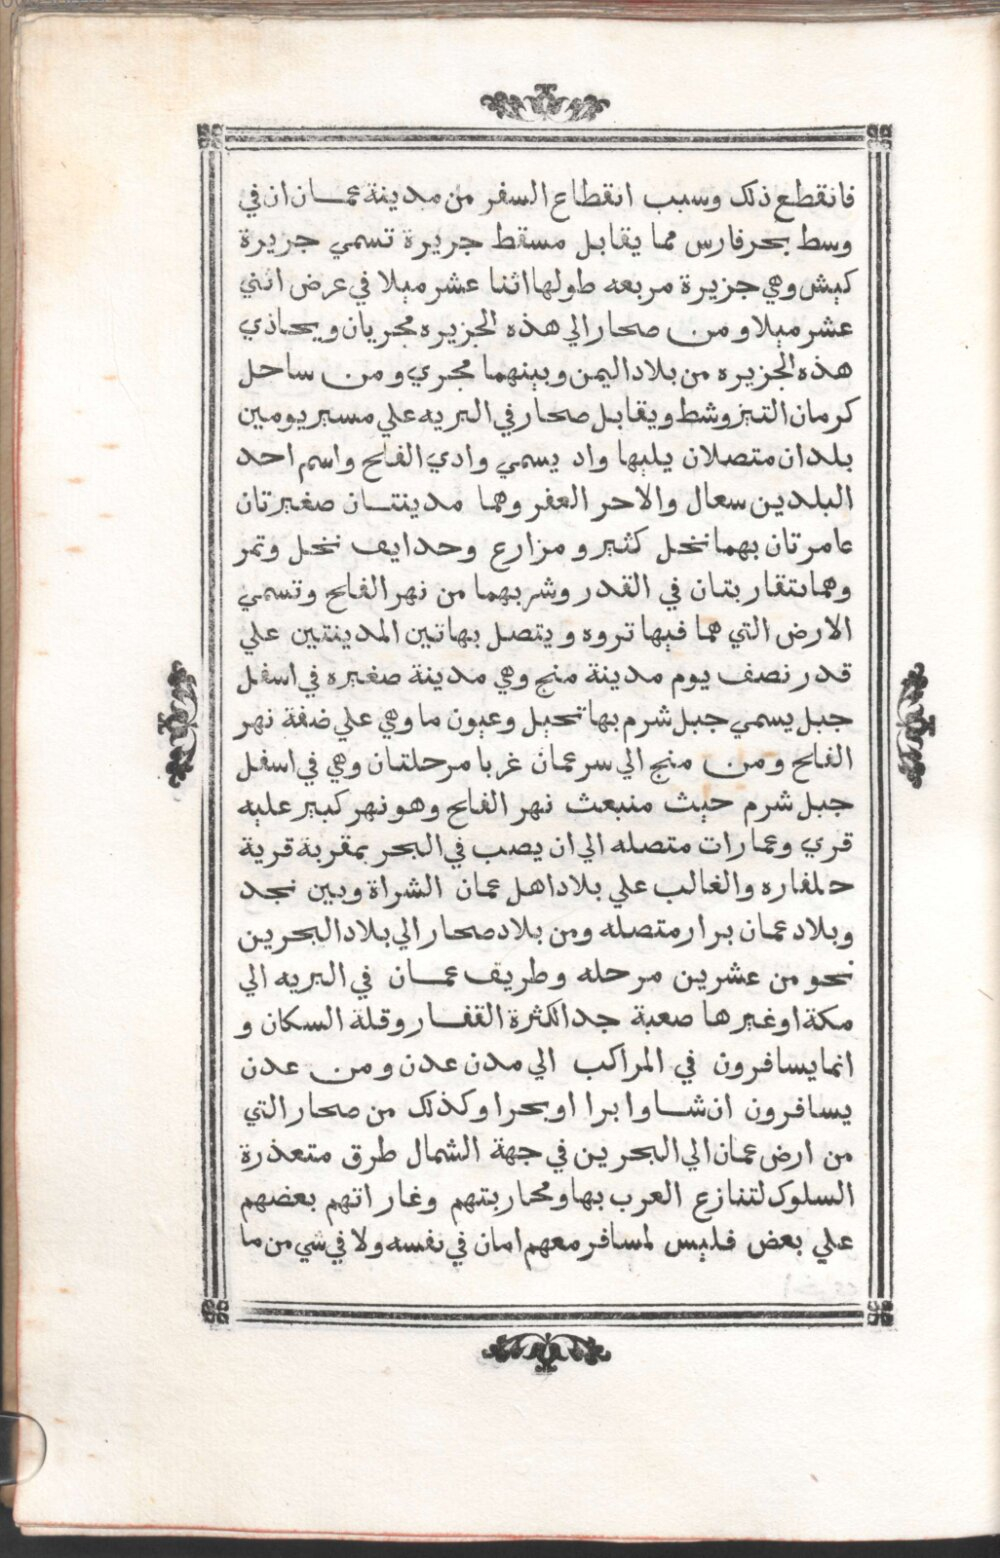 فانقطع ذلك وسبب انقطاع السفر من مدينة عمان ان في
وسط بحر فارس مما يقابل مسقط جريرة تسمي جريرة
كيش وهي جزيرة مربعه طولها اثنا عشر ميلا في عرض اثني
عشر ميلا ومن صحار الي هذه الجزيره مجريان ويحاذي
هذه الجزيره من بلاد اليمن وبينهما مجري ومن ساحل
كرمان التيز وشط ويقابل صحار في البريه علي مسير يومين
بلدان متصلان يليها واد يسمي وادي الفاح واسم احد
البلدين سعال والاحر العفر وهما مدينتان صغيرتان
عامرتان بهما نخل كثير و مزارع وحدايف نخل وتمر
وهما متقاربتان في القدر وشربهما من نهر الفاح وتسمي
الارض التي هما فيها تروه ويتصل بهاتين المدينتين علي
قدر نصف يوم مدينة منج وهي مدينة صغيره في اسفل
جبل يسمي جبل شرم بها نخيل وعيون ما وهي علي ضفة نهر
الفاح ومن منج الي سر عمان غربا مرحلتان وهي في اسفل
جبل شرم حيث منبعث نهر الفاح وهو نهر كبير عليه
قري وعمارات متصله الي ان يصب في البحر بمقربة قرية
حلفاره والغالب علي بلاد اهل عمان الشراة وبين نجد
وبلاد عمان برار متصله ومن بلاد صحار الي بلاد البحرين
نحو من عشرين مرحله وطريف عمان في البريه الي
مكة او غيرها صعبة جدا لكثرة القفار وقلة السكان و
انما يسافرون في المراكب الي مدن عدن ومن عدن
يسافرون ان شاوا برا او بحرا وكذلك من صحار التي
من ارض عمان الي البحرين في جهة الشمال طرق متعذرة
السلوك لتنازع العرب بها ومحاربتهم وغاراتهم بعضهم
علي بعض فليس لمسافر معهم امان في نفسه ولا في شي من ما